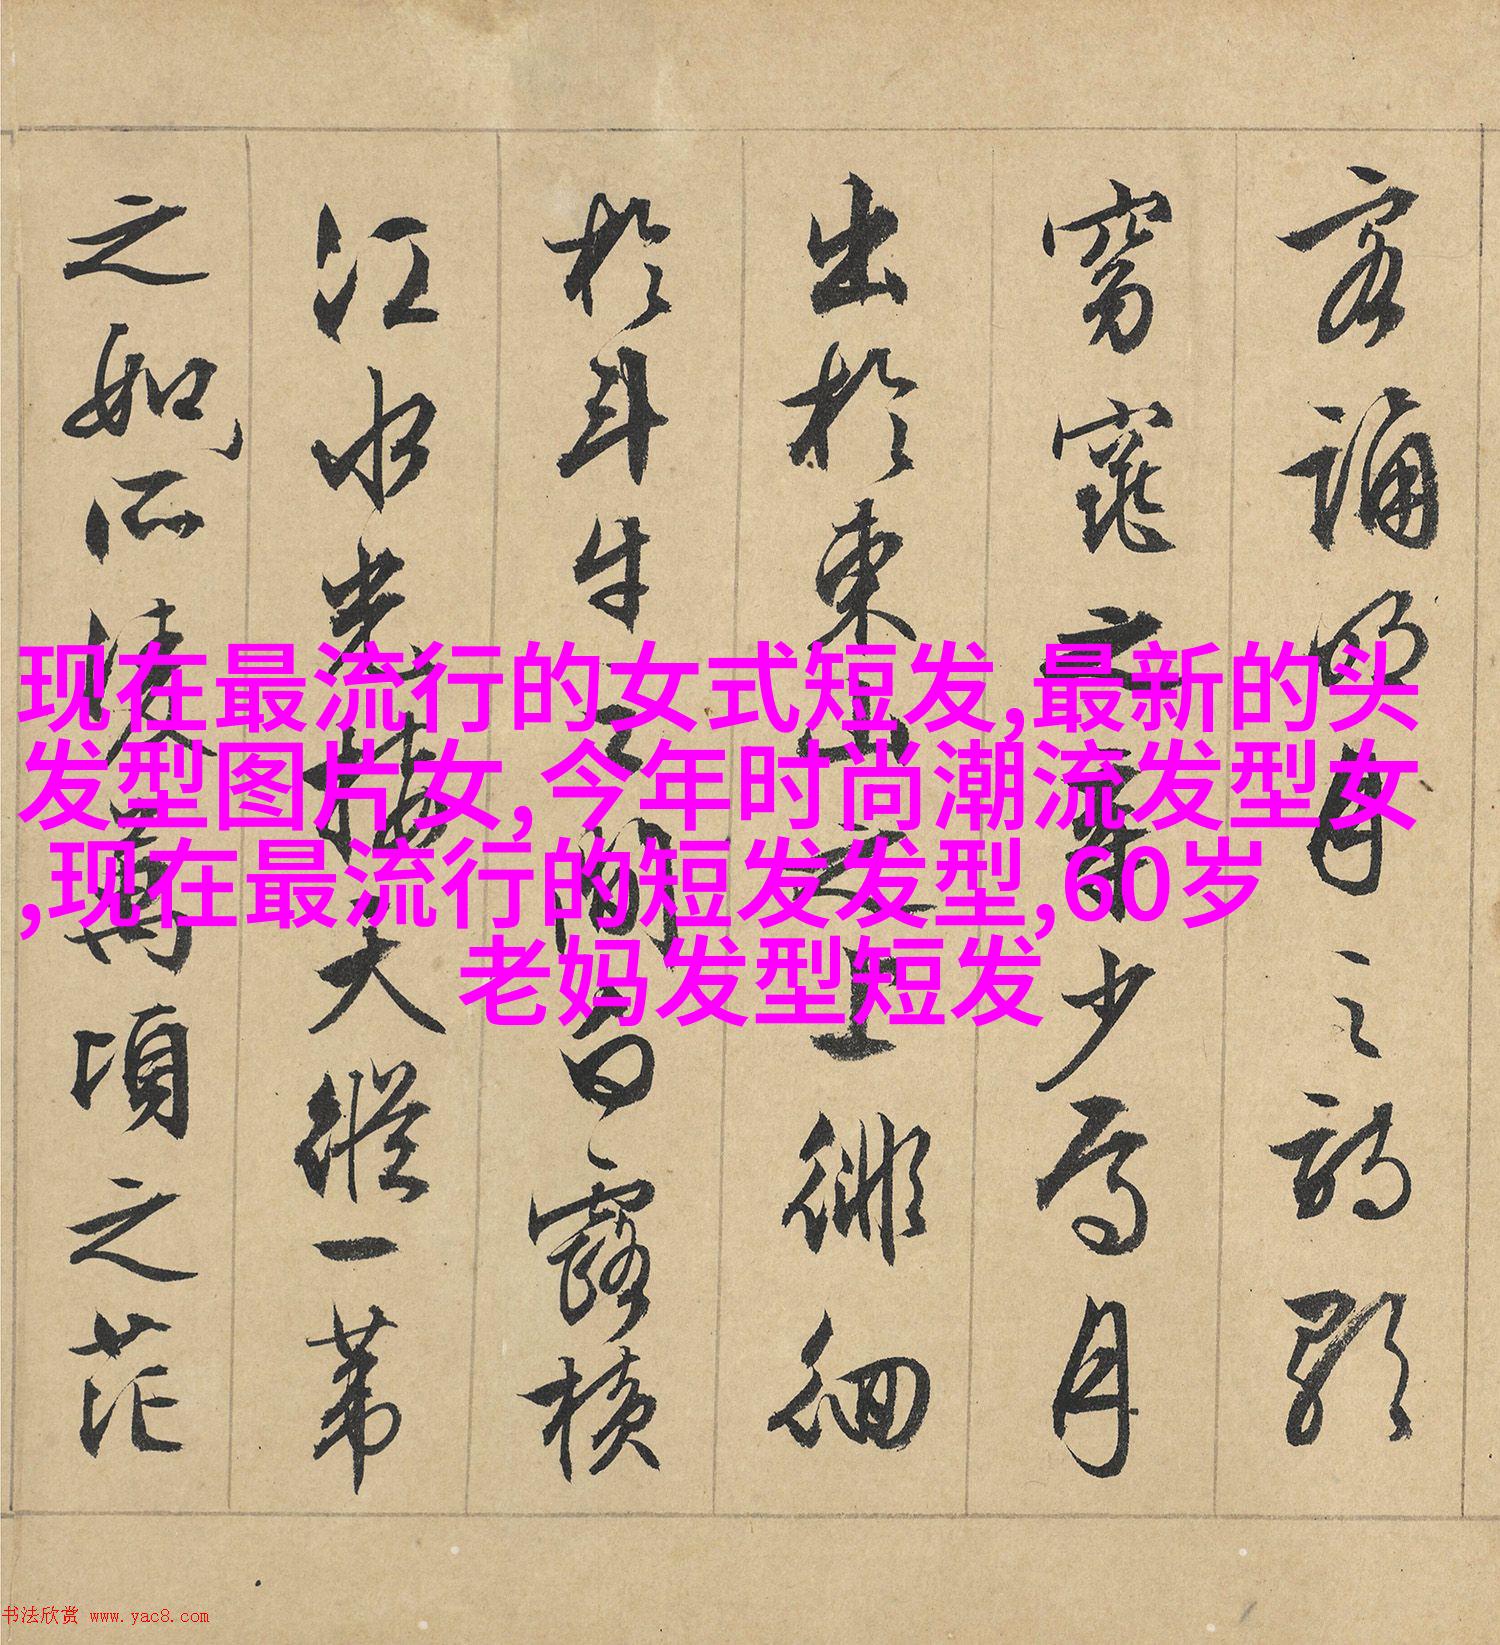 客誦明月之詩歌
窈窕之章少焉月
出於東山之上徘徊
於斗牛之間白露橫
江水光接天縱一葦
之如所凌萬頃之茫
现在最流行的女式短发,最新的头
发型图片女,今年时尚潮流发型女
,现在最流行的短发发型,60岁
老妈发型短发
书法欣赏 www.yac8.com